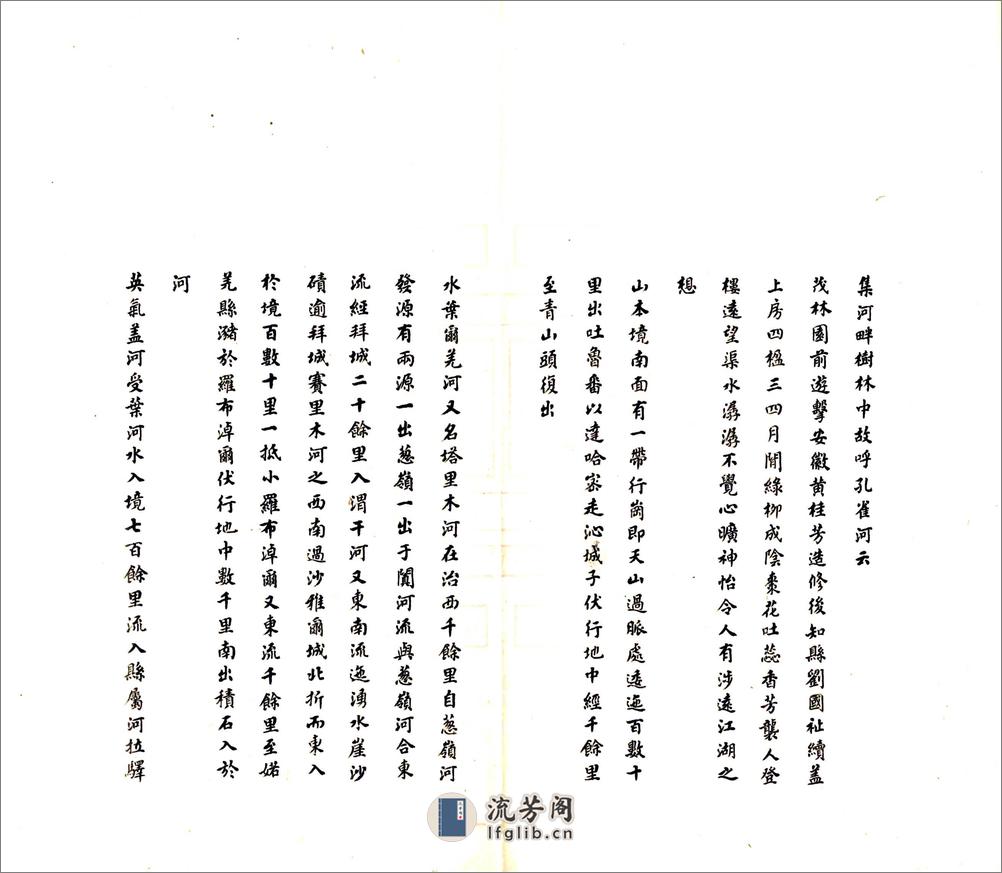 集河畔樹林中故呼孔雀河云
茂林園前遊擊安徽黃桂芳造修後知縣劉國祉續蓋
上房四楹三四月間綠柳成陰棗花吐蕊香芳襲人登
樓遠望渠水潺潺不覺心曠神怡令人有涉遠江湖之
想
山本境南面有一帶行崗即天山過脈處逶迤百數十
里出吐魯番以達哈密走沁城子伏行地中經千餘里
至青山頭復出
水葉爾羌河又名塔里木河在治西千餘里自葱嶺河
發源有兩源一出葱嶺一出于闐河流與葱嶺河合東
流經拜城二十餘里入渭干河又東南流迤湧水崖沙
磧逾拜城賽里木河之西南過沙雅爾城北折而東入
於境百數十里一抵小羅布淖爾又東流千餘里至婼
羌縣瀦於羅布淖爾伏行地中數千里南出積石入於
河
英氣蓋河受葉河水入境七百餘里流入縣屬河拉驛
流芳阁
lfglib.cn